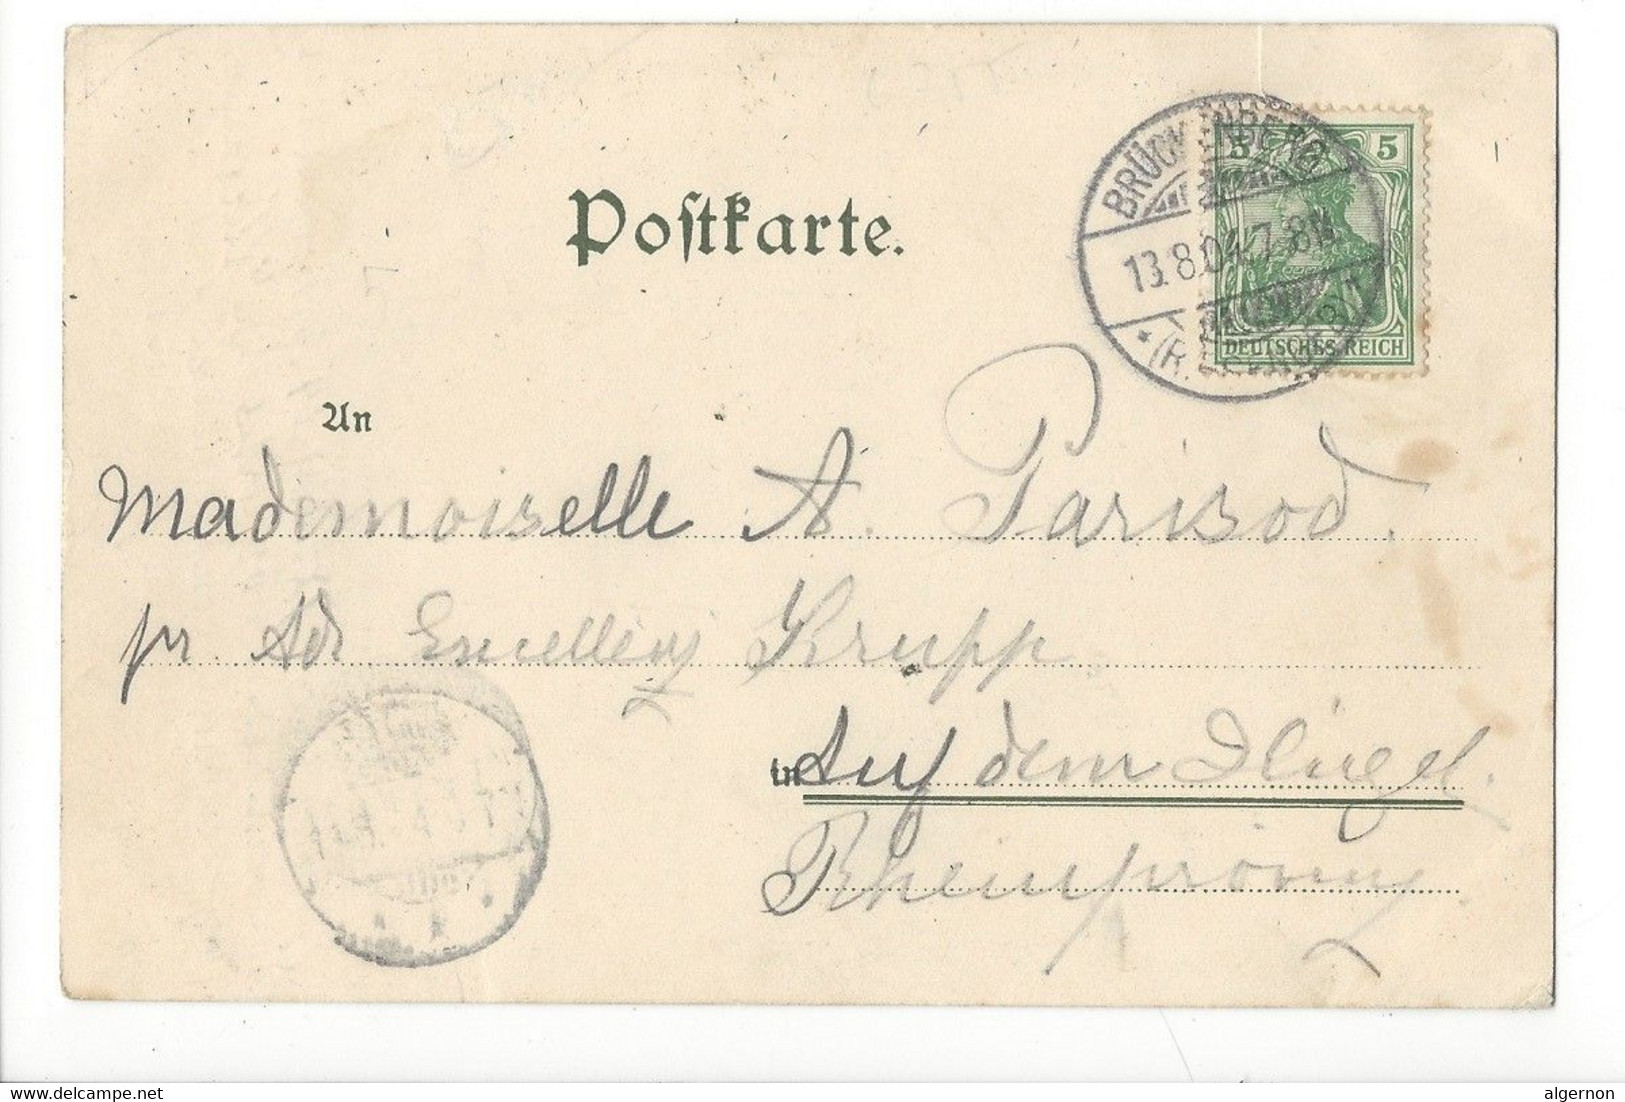 Postkarte.
BRÜCKENBERG
13.8.04.7-8N
* (R.
5 5
DEUTSCHES REICH
An
Mademoiselle A. Parisod.
pr Adr Excellenz Krupp
in Auf dem Hügel.
Rheinprovinz
delcampe.net
algernon